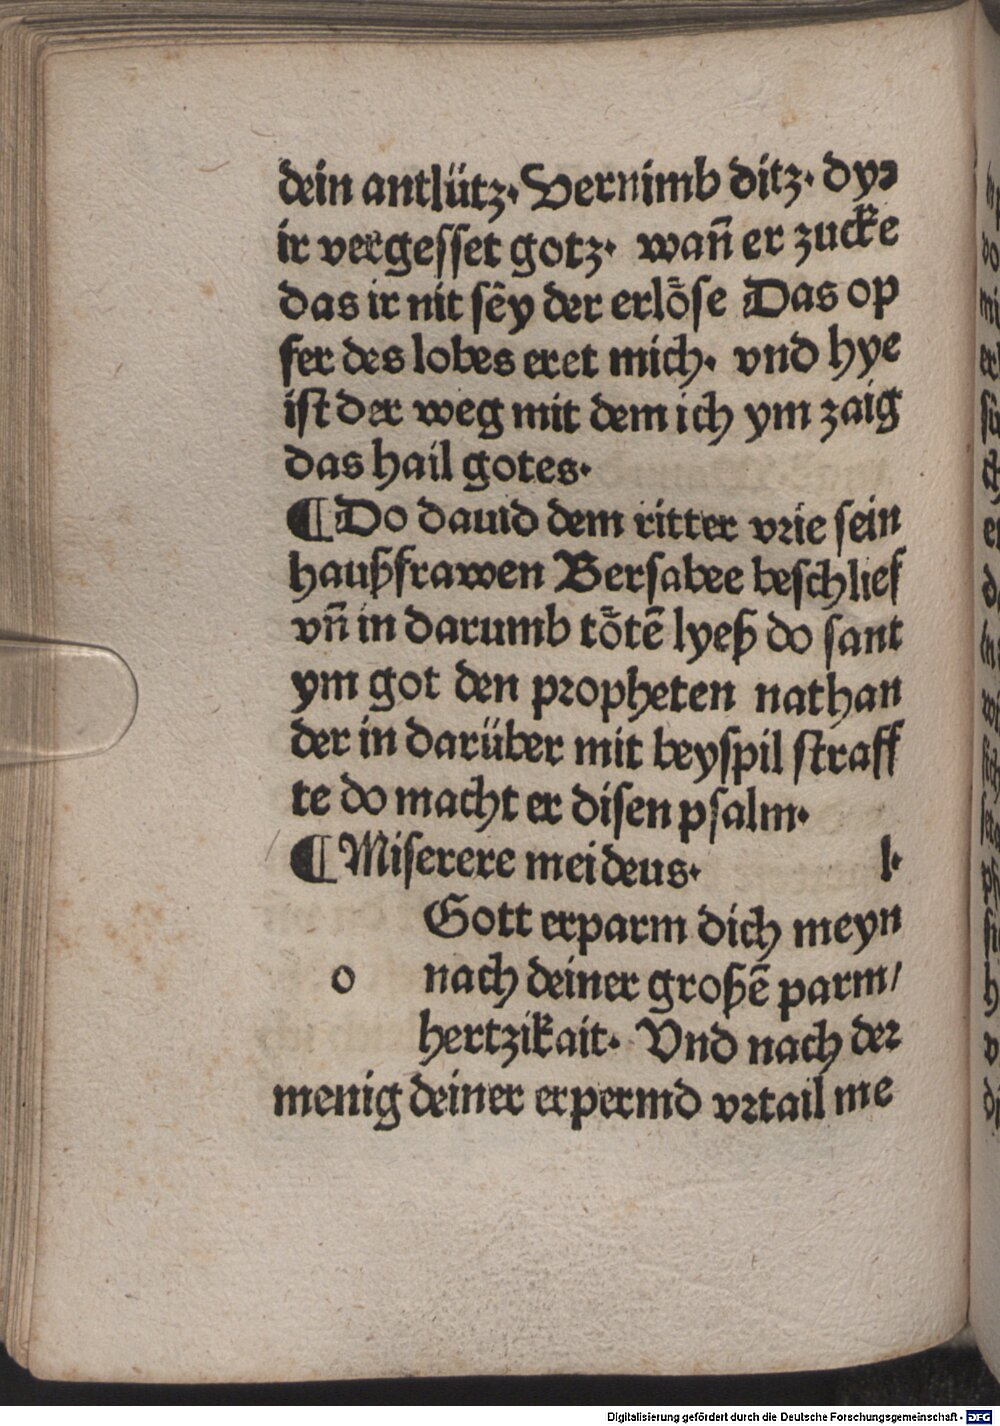 dein antlütz· Vernimb ditz· dy
ir vergesset gotz· wañ er zucke
das ir nit sey der erlöse Das op
fer des lobes eret mich· vnd hye
ist der weg mit dem ich ym zaig
das hail gotes·
¶ Do dauid dem ritter vrie sein
haußfrawen Bersabee beschlief
vñ in darumb tötē lyeß do sant
ym got den propheten nathan
der in darüber mit beyspil straff
te do macht er disen psalm·
¶ Miserere mei deus· l·
Gott erparm dich meyn
o nach deiner großē parm/
hertzikait· Vnd nach der
menig deiner erpermd vrtail me
Digitalisierung gefördert durch die Deutsche Forschungsgemeinschaft - DFG